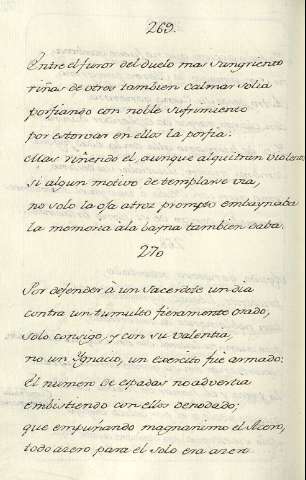 269.
Entre el furor del duelo mas sangriento
riñas de otros tambien calmar solia
porfiando con noble sufrimiento
por estorvar en ellos la porfia:
Mas riñendo el, aunque alquitran violento
si algun motivo de templarse via,
no solo la oja atroz prompto embaynaba
la memoria à la bayna tambien daba.
270
Por defender à un Sacerdote un dia
contra un tumulto fieramente osado,
solo consigo, y con su valentia,
no un Ygnacio, un exercito fue armado:
el numero de espadas no advertia
embistiendo con ellos denodado;
que empuñando magnanimo el Acero,
todo azero para el solo era azero